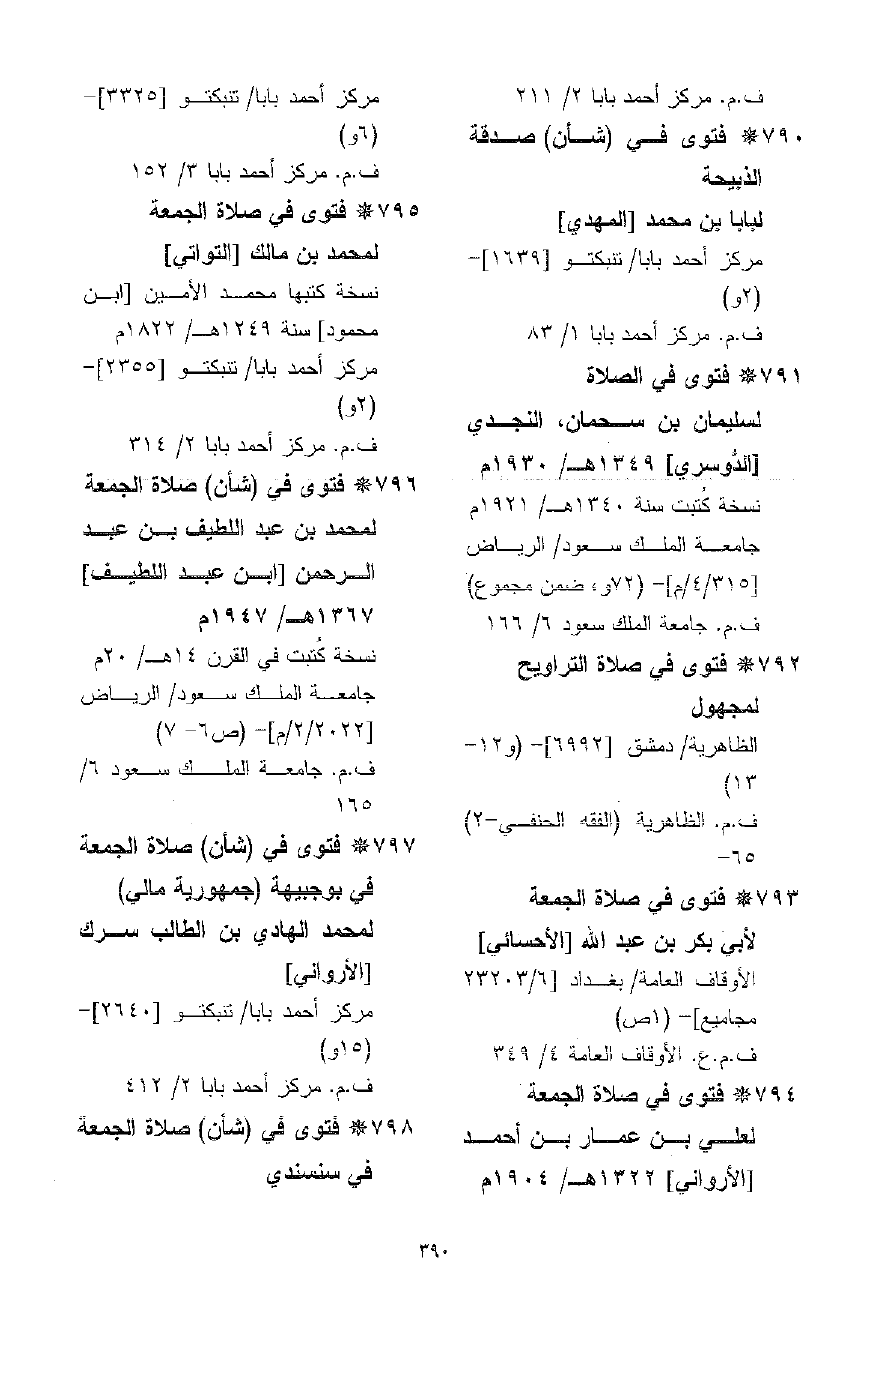 ف.م. مركز أحمد بابا ٢/ ٢١١
٧٩٠* فتوى في (شأن) صدقة
الذبيحة
لبابا بن محمد [المهدي]
مركز أحمد بابا/ تنبكتو [١٦٣٩]-
(٢و)
ف.م. مركز أحمد بابا ١/ ٨٣
٧٩١* فتوى في الصلاة
لسليمان بن سحمان، النجدي
[الدُّوسري] ١٣٤٩هـ/ ١٩٣٠م
نسخة كُتبت سنة ١٣٤٠هـ/ ١٩٢١م
جامعة الملك سعود/ الرياض
[٤/٣١٥/م]- (٧٢و، ضمن مجموع)
ف.م. جامعة الملك سعود ٦/ ١٦٦
٧٩٢* فتوى في صلاة التراويح
لمجهول
الظاهرية/ دمشق [٦٩٩٢]- (و١٢-
١٣)
ف.م. الظاهرية (الفقه الحنفي-٢)
٦٥-
٧٩٣* فتوى في صلاة الجمعة
لأبي بكر بن عبد الله [الأحسائي]
الأوقاف العامة/ بغداد [٢٣٢٠٣/٦
مجاميع]- (١ص)
ف.م.ع. الأوقاف العامة ٤/ ٣٤٩
٧٩٤* فتوى في صلاة الجمعة
لعلي بن عمار بن أحمد
[الأرواني] ١٣٢٢هـ/ ١٩٠٤م
مركز أحمد بابا/ تنبكتو [٣٣٢٥]-
(٦و)
ف.م. مركز أحمد بابا ٣/ ١٥٢
٧٩٥* فتوى في صلاة الجمعة
لمحمد بن مالك [التواتي]
نسخة كتبها محمد الأمين [ابن
محمود] سنة ١٢٤٩هـ/ ١٨٢٢م
مركز أحمد بابا/ تنبكتو [٢٣٥٥]-
(٢و)
ف.م. مركز أحمد بابا ٢/ ٣١٤
٧٩٦* فتوى في (شأن) صلاة الجمعة
لمحمد بن عبد اللطيف بن عبد
الرحمن [ابن عبد اللطيف]
١٣٦٧هـ/ ١٩٤٧م
نسخة كُتبت في القرن ١٤هـ/ ٢٠م
جامعة الملك سعود/ الرياض
[٢/٢٠٢٢/م]- (ص٦- ٧)
ف.م. جامعة الملك سعود ٦/
١٦٥
٧٩٧* فتوى في (شأن) صلاة الجمعة
في بوجبيهة (جمهورية مالي)
لمحمد الهادي بن الطالب سرك
[الأرواني]
مركز أحمد بابا/ تنبكتو [٢٦٤٠]-
(١٥و)
ف.م. مركز أحمد بابا ٢/ ٤١٢
٧٩٨* فتوى في (شأن) صلاة الجمعة
في سنسندي
٣٩٠